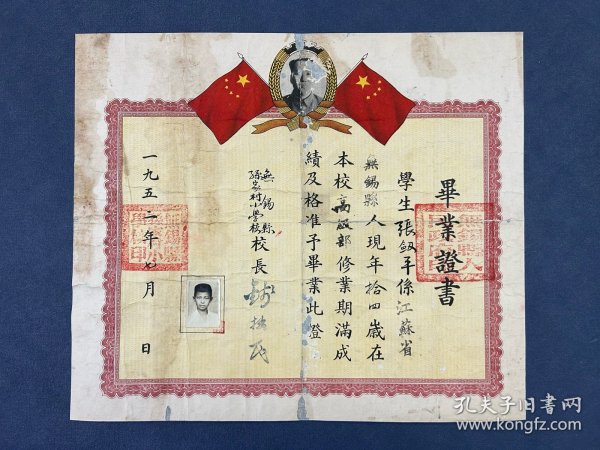 畢業證書
學生張釼平係江蘇省
無錫縣人現年拾四歲在
本校高級部修業期滿成
績及格准予畢業此證
無錫縣
孫家村小學校校長
一九五二年七月 日
孔夫子旧书网
www.kongfz.com